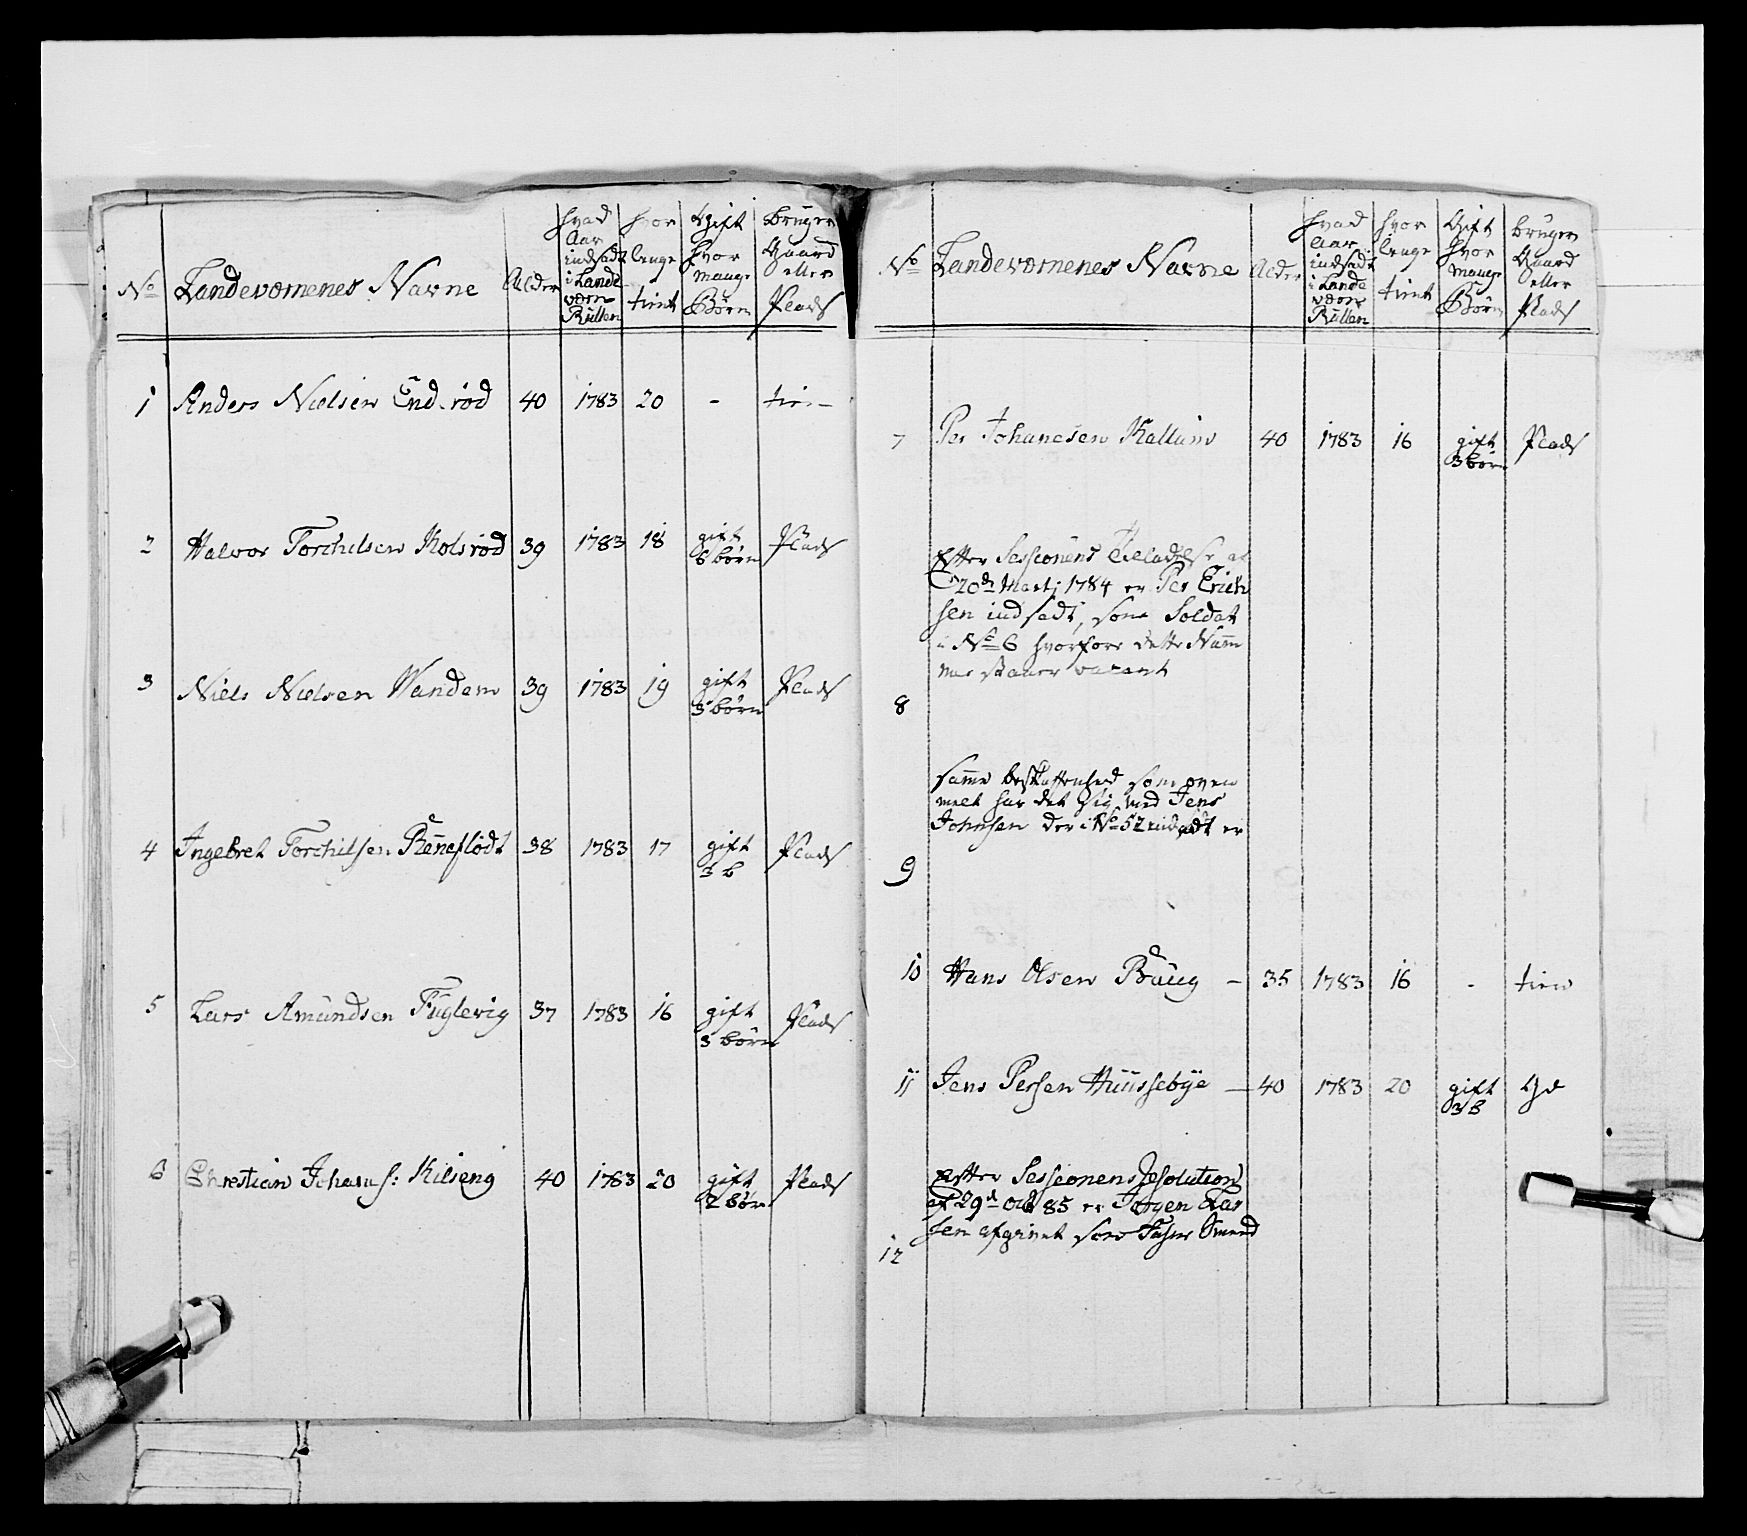 No Landeværnenes Navne Alder hvad Aar indsadt i Lande værn Rullen hvor lenge tient Gift hvor mange Børn bruger Gaard eller Plads
1 Anders Nielsen End.rød 40 1783 20 -
2 Halvor Torchilsen Kolsrød 39 1783 18 gift børn Plads
3 Niels Nielsen Wandem 39 1783 19 gift 3 børn Plads
4 Ingebret Torchilsen Rëneflödt 38 1783 17 gift 3 b Plads
5 Lars Amundsen Fuglevig 37 1783 16 gift 3 børn Plads
6 Chrestian Johans: Kilseng 40 1783 20 gift 2 børn Plads
No Landeværnenes Navne Alder hvad Aar indsadt i Lande værn Rullen hvor lenge tient Gift hvor mange Børn bruger Gaard eller Plads
7 Per Johanesen Kallum 40 1783 16 gift 3 børn Plads
Efter Sessionens Tilladelse af
20de Martj 1784 er Per Erich
sen indsadt, som Soldat
i No 6 hvorfore dette Num̅
mer staaer vacant
8
samme beskaffenhed som oven
melt har det sig med Jens
Johnsen der i No 52 indsadt er
9
10 Hans Olsen Baug - 35 1783 16 - tien
11 Jens Persen Huussebÿe - 40 1783 20 gift 3 b Gd
Efter Sessionens Resolution
af 29d Oct 85 er Jørgen Lar
sen afgivet som
12